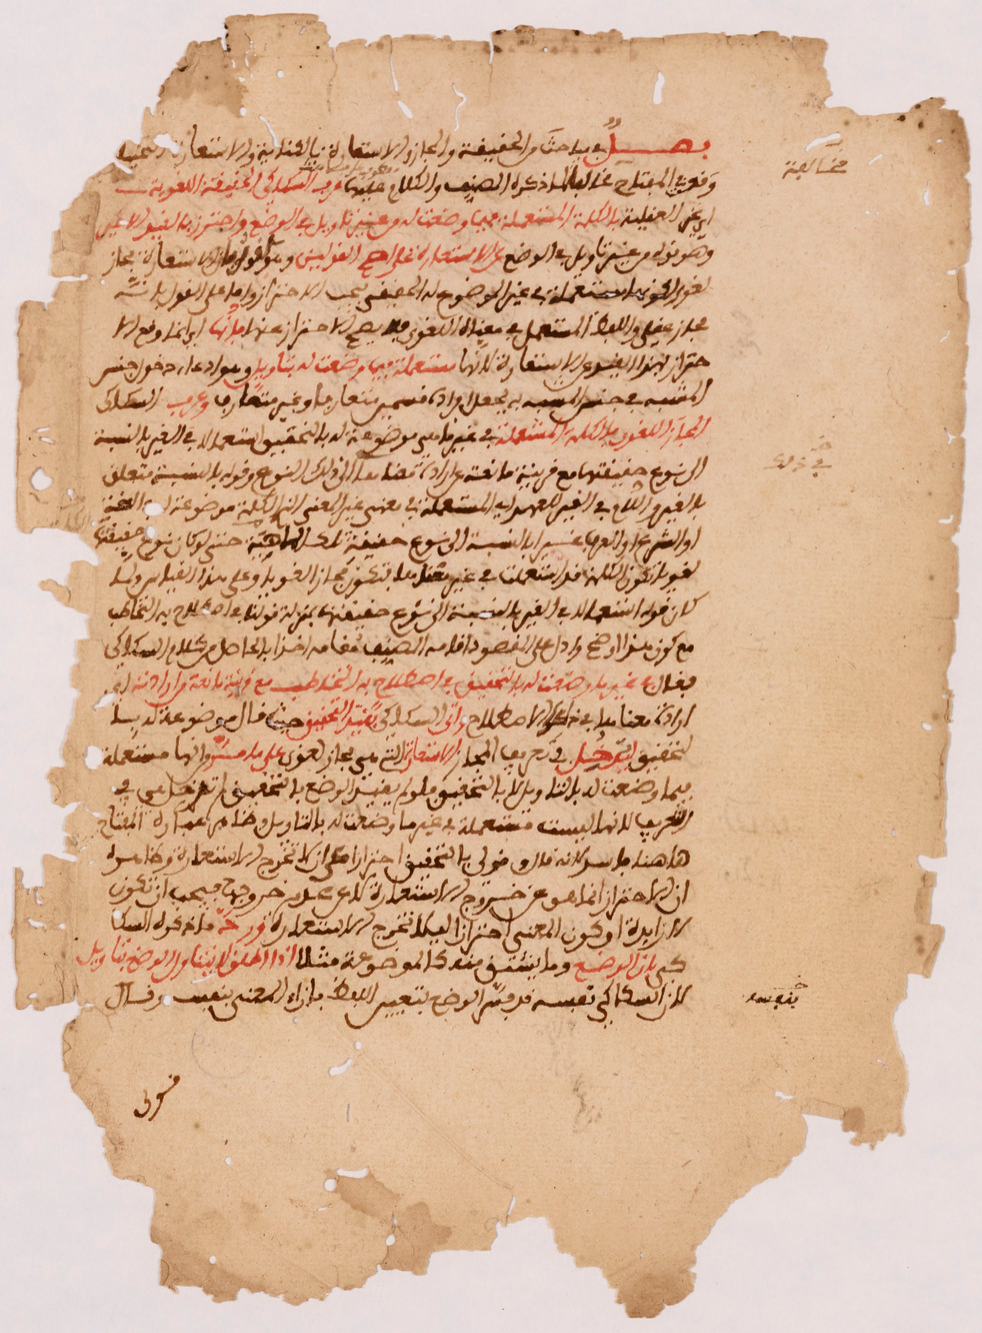 فصل في مباحث من الحقيقة والمجاز والاستعارة بالكناية والاستعارة التخييلية
وقع في المفتاح مخالفا لما ذكره المصنف والكلام عليها عرف السكاكي الحقيقة اللغوية
اي غير العقلية بالكلمة المستعملة فيما وضعت له من غير تاويل في الوضع واحترز بالقيد الاخير
وهو قوله من غير تاويل في الوضع عن الاستعارة على اصح القولين وهو القول بان الاستعارة مجاز
لغوي لكونها مستعملة في غير الموضوع له الحقيقي فيجب الاحتراز واما على القول بانها
مجاز عقلي واللفظ المستعمل في معناه اللغوي فلا يصح الاحتراز عنها فانها اي انما وقع الا
حتراز بهذا القيد عن الاستعارة لانها مستعملة فيما وضعت له بتاويل وهو ادعاء دخول جنس
المشبه في جنس المشبه به بجعل افراده قسمين متعارفا وغير متعارف وعرف السكاكي
المجاز اللغوي بالكلمة المستعملة في غير ما هي موضوعة له بالتحقيق استعمالا في الغير بالنسبة
الى نوع حقيقتها مع قرينة مانعة عن ارادة معناها في ذلك النوع وقوله بالنسبة متعلق
بالغير واللام في الغير للعهد اي المستعملة في معنى غير المعنى الذي الكلمة موضوعة له في اللغة
او الشرع او العرف غيرا بالنسبة الى نوع حقيقة تلك حتى لو كان نوع حقيقتها
لغويا تكون الكلمة قد استعملت في غير معناها فتكون مجازا لغويا وعلى هذا القياس ولما
كان قوله استعمالا في الغير بالنسبة الى نوع حقيقتها بمنزلة قولنا في اصطلاح به التخاطب
مع كون هذا اوضح وادل على المقصود اقامه المصنف مقامه اخذا بالحاصل من كلام السكاكي
فقال في غير ما وضعت له بالتحقيق في اصطلاح به التخاطب مع قرينة مانعة عن ارادته اي
ارادة معناها في ذلك الاصطلاح واتى السكاكي بقيد التحقيق حيث قال موضوعة له با
لتحقيق لتدخل في تعريف المجاز الاستعارة التي هي مجاز لغوي على ما مر من انها مستعملة
فيما وضعت له بالتاويل لا بالتحقيق فلو لم يقيد الوضع بالتحقيق لم تدخل هي في
التعريف لانها ليست مستعملة في غير ما وضعت له بالتاويل وظاهر عبارة المفتاح
هاهنا فاسد لانه قال وقولي بالتحقيق احترازا عن ان لا تخرج الاستعارة وظاهره
ان الاحتراز انما هو عن خروج الاستعارة لا عن عدم خروجها فيجب ان تكون
لا زايدة او يكون المعنى احترازا ليلا تخرج الاستعارة ورد ما ذكره السكا
كي بان الوضع وما يشتق منه كالموضوعة مثلا اذا اطلق لا يتناول الوضع بتاويل
لان السكاكي نفسه قد فسر الوضع بتعيين اللفظ بازاء المعنى بنفسه وقال
قولي
مخالفة
بنفسه